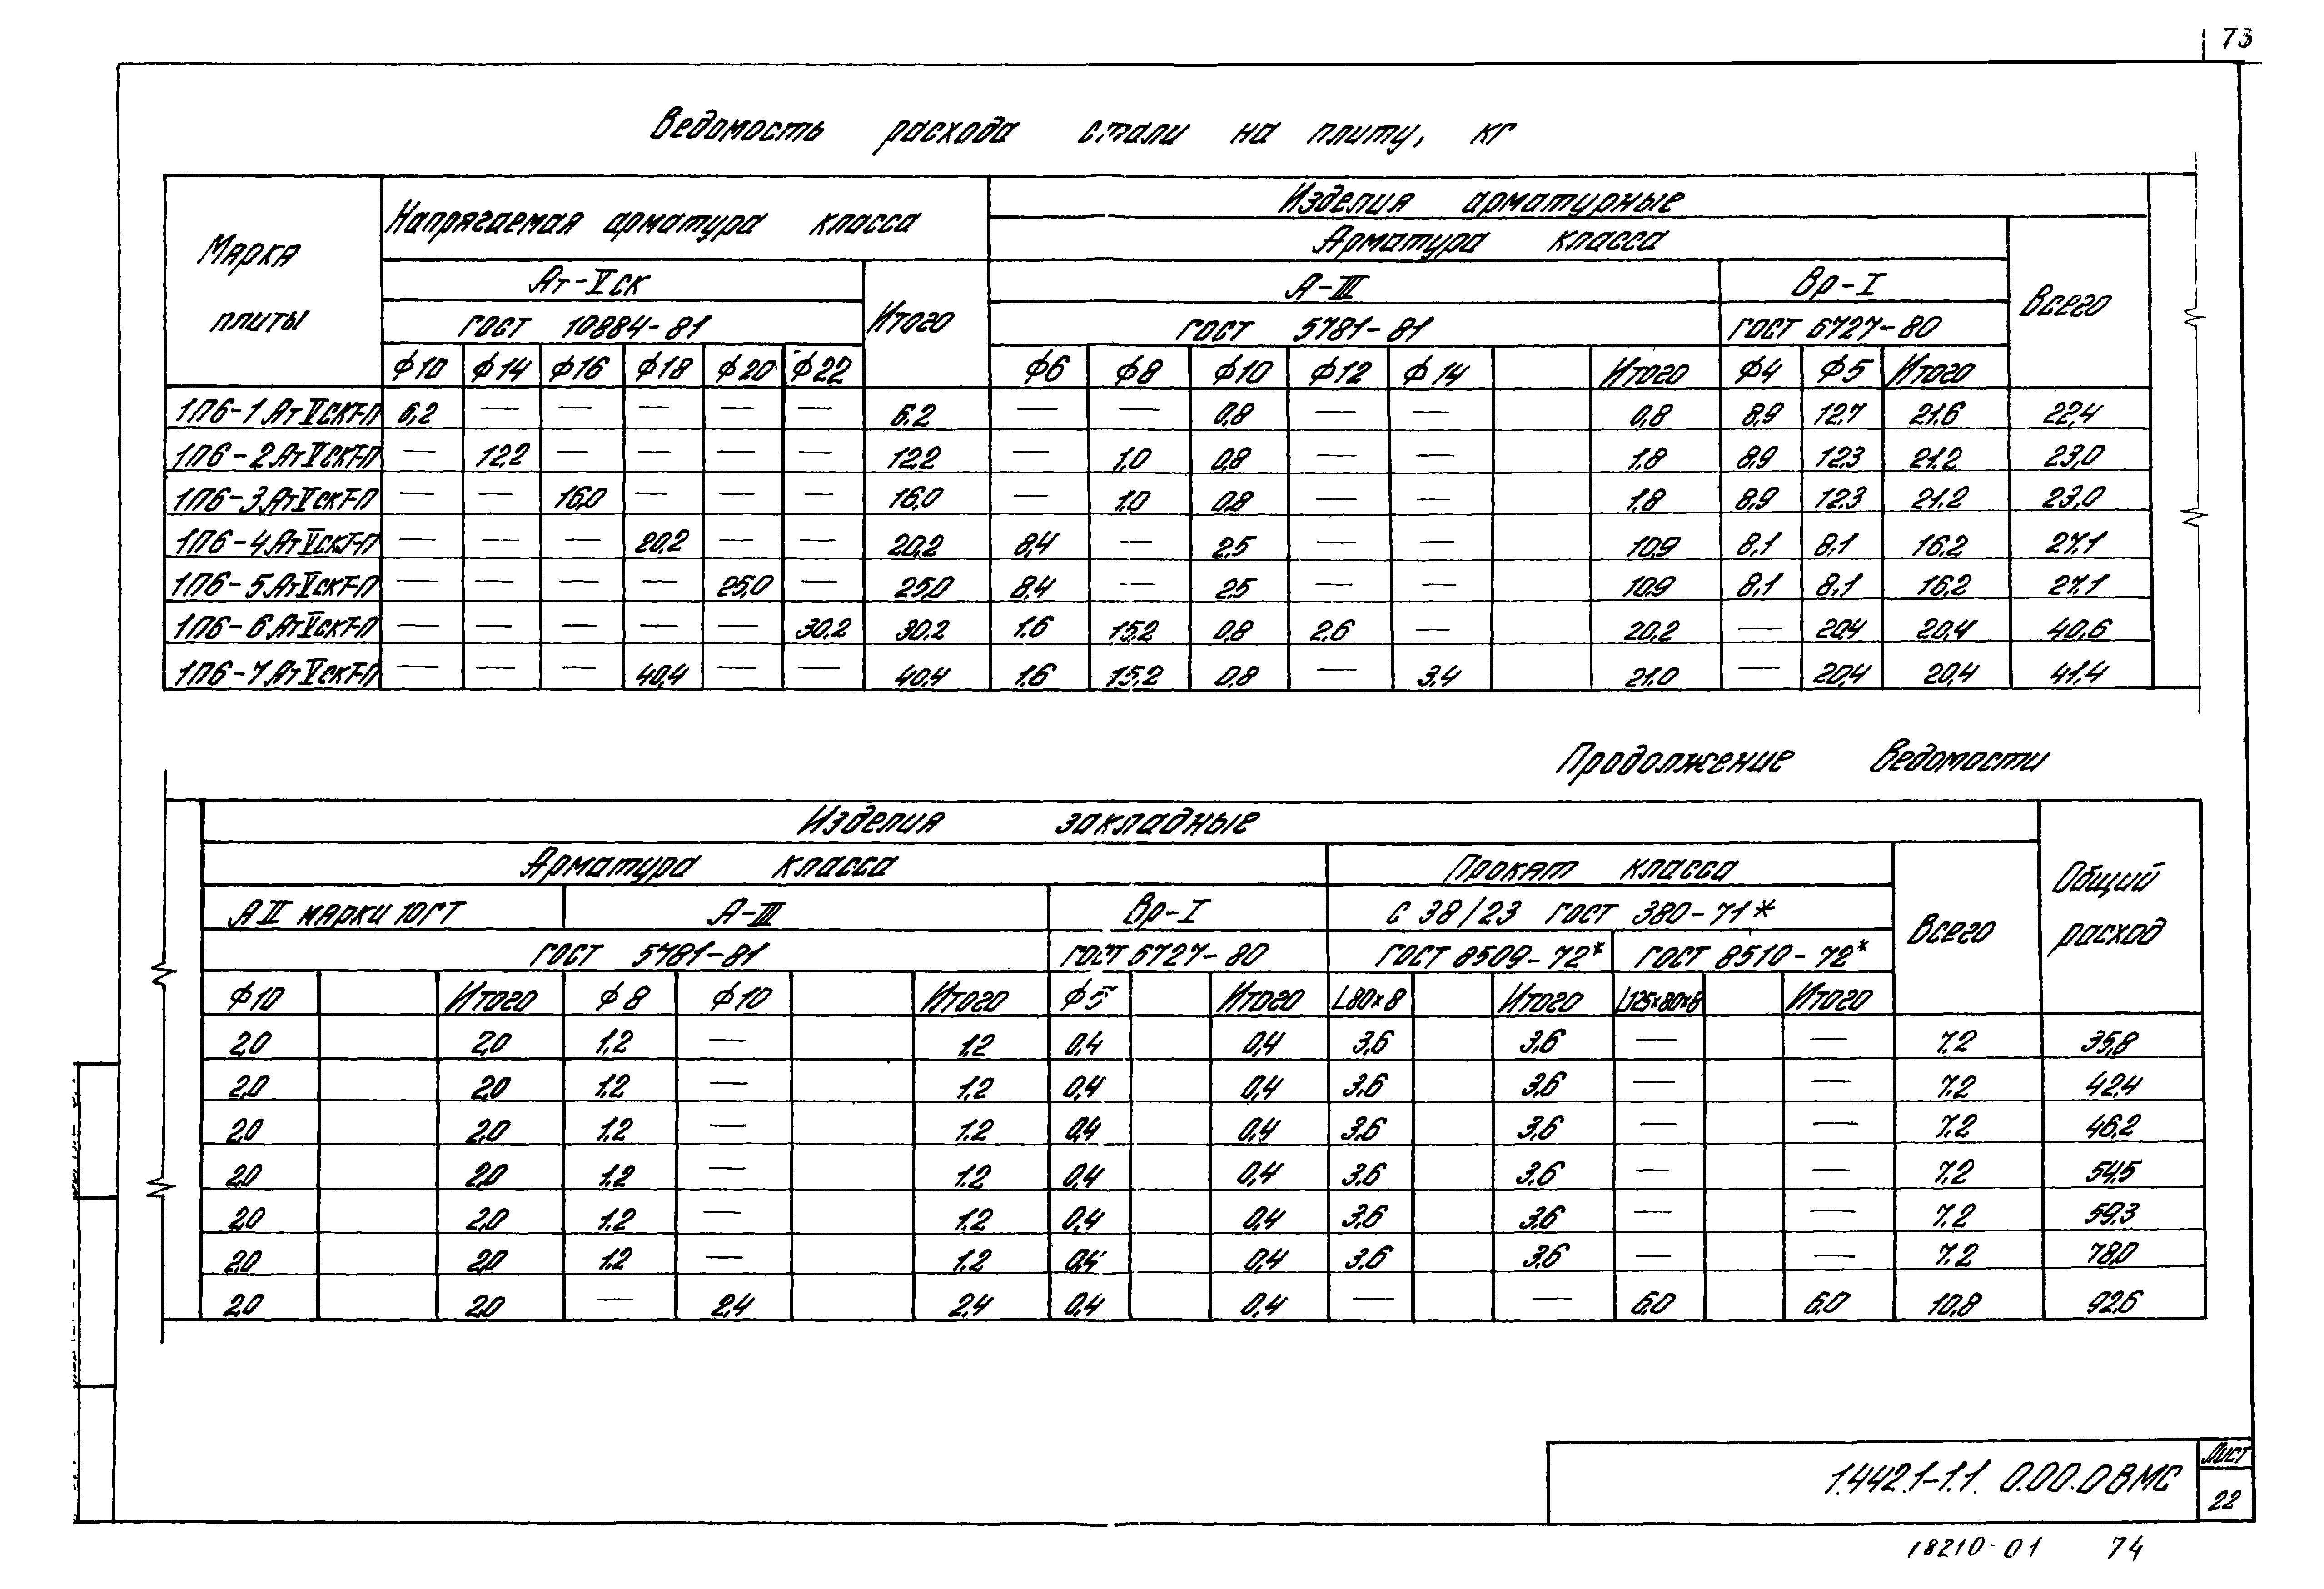 73
Ведомость расхода стали на плиту, кг
Марка плиты
Напрягаемая арматура класса
Изделия арматурные
Арматура класса
Ат-Vск
Итого
А-III
Вр-I
Всего
ГОСТ 10884-81
ГОСТ 5781-81
ГОСТ 6727-80
ф10 ф14 ф16 ф18 ф20 ф22 ф6 ф8 ф10 ф12 ф14 Итого ф4 ф5 Итого
1П6-1АтVСКТ-П 6,2 — — — — — 6.2 — — 0,8 — — 0,8 8,9 12,7 21,6 22,4
1П6-2АтVСКТ-П — 12,2 — — — — 12,2 — 1,0 0,8 — — 1,8 8,9 12,3 21,2 23,0
1П6-3АтVСКТ-П — — 16,0 — — — 16,0 — 1,0 0,8 — — 1,8 8,9 12,3 21,2 23,0
1П6-4АтVСКТ-П — — — 20,2 — — 20,2 8,4 — 2,5 — — 10,9 8,1 8,1 16,2 27,1
1П6-5АтVСКТ-П — — — — 25,0 — 25,0 8,4 — 2,5 — — 10,9 8,1 8,1 16,2 27,1
1П6-6АтVСКТ-П — — — — — 30,2 30,2 1,6 15,2 0,8 2,6 — 20,2 — 20,4 20,4 40,6
1П6-7АтVСКТ-П — — — 40,4 — — 40,4 1,6 15,2 0,8 — 3,4 21,0 — 20,4 20,4 41,4
Продолжение ведомости
Изделия закладные
Общий расход
Арматура класса
Прокат класса
Всего
АII марки 10ГТ
А-III
Вр-I
С 38/23 ГОСТ 380-71*
ГОСТ 5781-81
ГОСТ 6727-80
ГОСТ 8509-72*
ГОСТ 8510-72*
ф10 Итого ф8 ф10 Итого ф5 Итого L80×8 Итого L125×80×8 Итого
2,0 2,0 1,2 — 1,2 0,4 0,4 3,6 3,6 — — 7,2 35,8
2,0 2,0 1,2 — 1,2 0,4 0,4 3,6 3,6 — — 7,2 42,4
2,0 2,0 1,2 — 1,2 0,4 0,4 3,6 3,6 — — 7,2 46,2
2,0 2,0 1,2 — 1,2 0,4 0,4 3,6 3,6 — — 7,2 54,5
2,0 2,0 1,2 — 1,2 0,4 0,4 3,6 3,6 — — 7,2 59,3
2,0 2,0 1,2 — 1,2 0,4 0,4 3,6 3,6 — — 7,2 78,0
2,0 2,0 — 2,4 2,4 0,4 0,4 — — 6,0 6,0 10,8 92,6
1.442.1-1.1. 0.00.0ВМС
Лист
22
18210-01 74